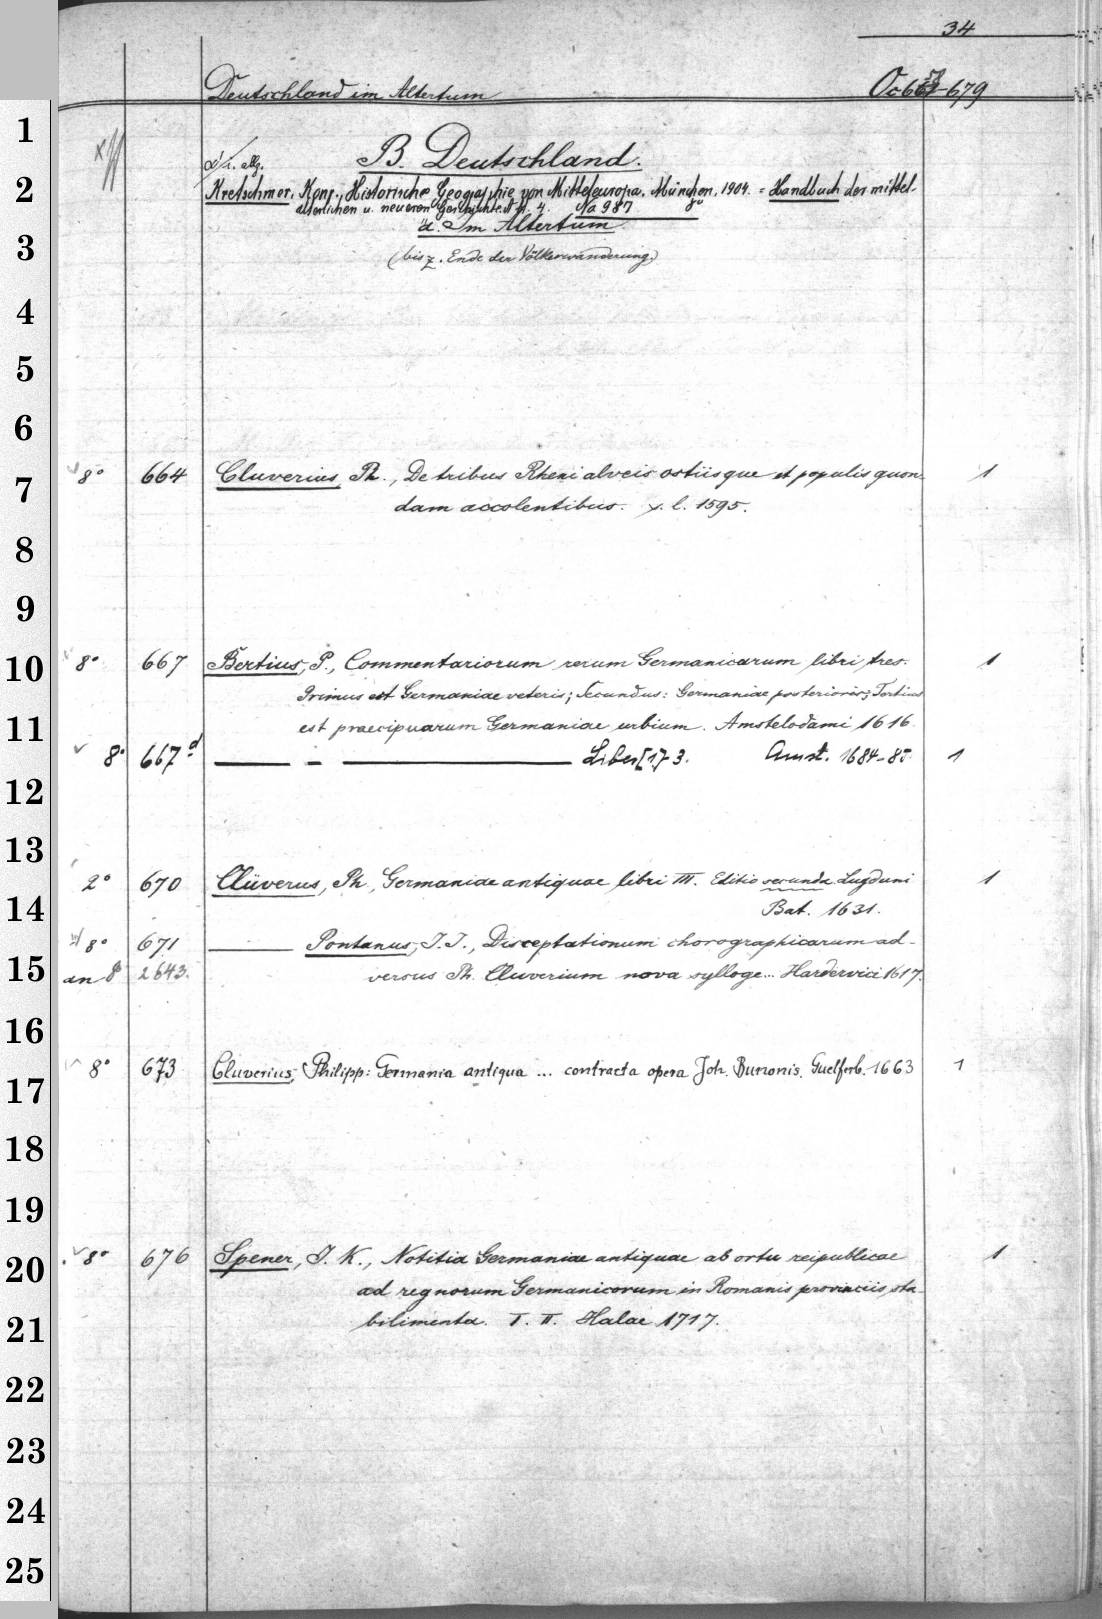 34
Deutschland im Altertum Oc 667-679
B. Deutschland.
a. allg.
Kretschmer, Konr., Historische Geographie von Mitteleuropa. München, 1904. = Handbuch der mittel-
alterlichen u. neueren Geschichte. Abt. 4. Na 987 8°
a. Im Altertum
(bis z. Ende der Völkerwanderung)
8° 664 Cluverius Ph., De tribus Rheni alveis ostiisque et populis quon-
dam accolentibus. s. l. 1595. 1
8° 667 Bertius, P., Commentariorum rerum Germanicarum libri tres. 1
Primus est Germaniae veteris; Secundus: Germaniae posterioris; Tertius
est praecipuarum Germaniae urbium. Amstelodami 1616.
8° 667a ——— — ——— Liber [1]-3. Amst. 1684-85. 1
2° 670 Clüverus, Ph., Germaniae antiquae libri III. Editio secunda Lugduni 1
Bat. 1631.
8° 671 ——— Pontanus, J. J., Disceptationum chorographicarum ad-
an 8° 2643. versus Ph. Cluverium nova sylloge... Hardervici 1617.
8° 673 Cluverius, Philipp: Germania antiqua ... contracta opera Joh. Bunonis. Guelferb. 1663 1
8° 676 Spener, J. K., Notitia Germaniae antiquae ab ortu reipublicae 1
ad regnorum Germanicorum in Romanis provinciis sta-
bilimenta. T. II. Halae 1717.
1
2
3
4
5
6
7
8
9
10
11
12
13
14
15
16
17
18
19
20
21
22
23
24
25